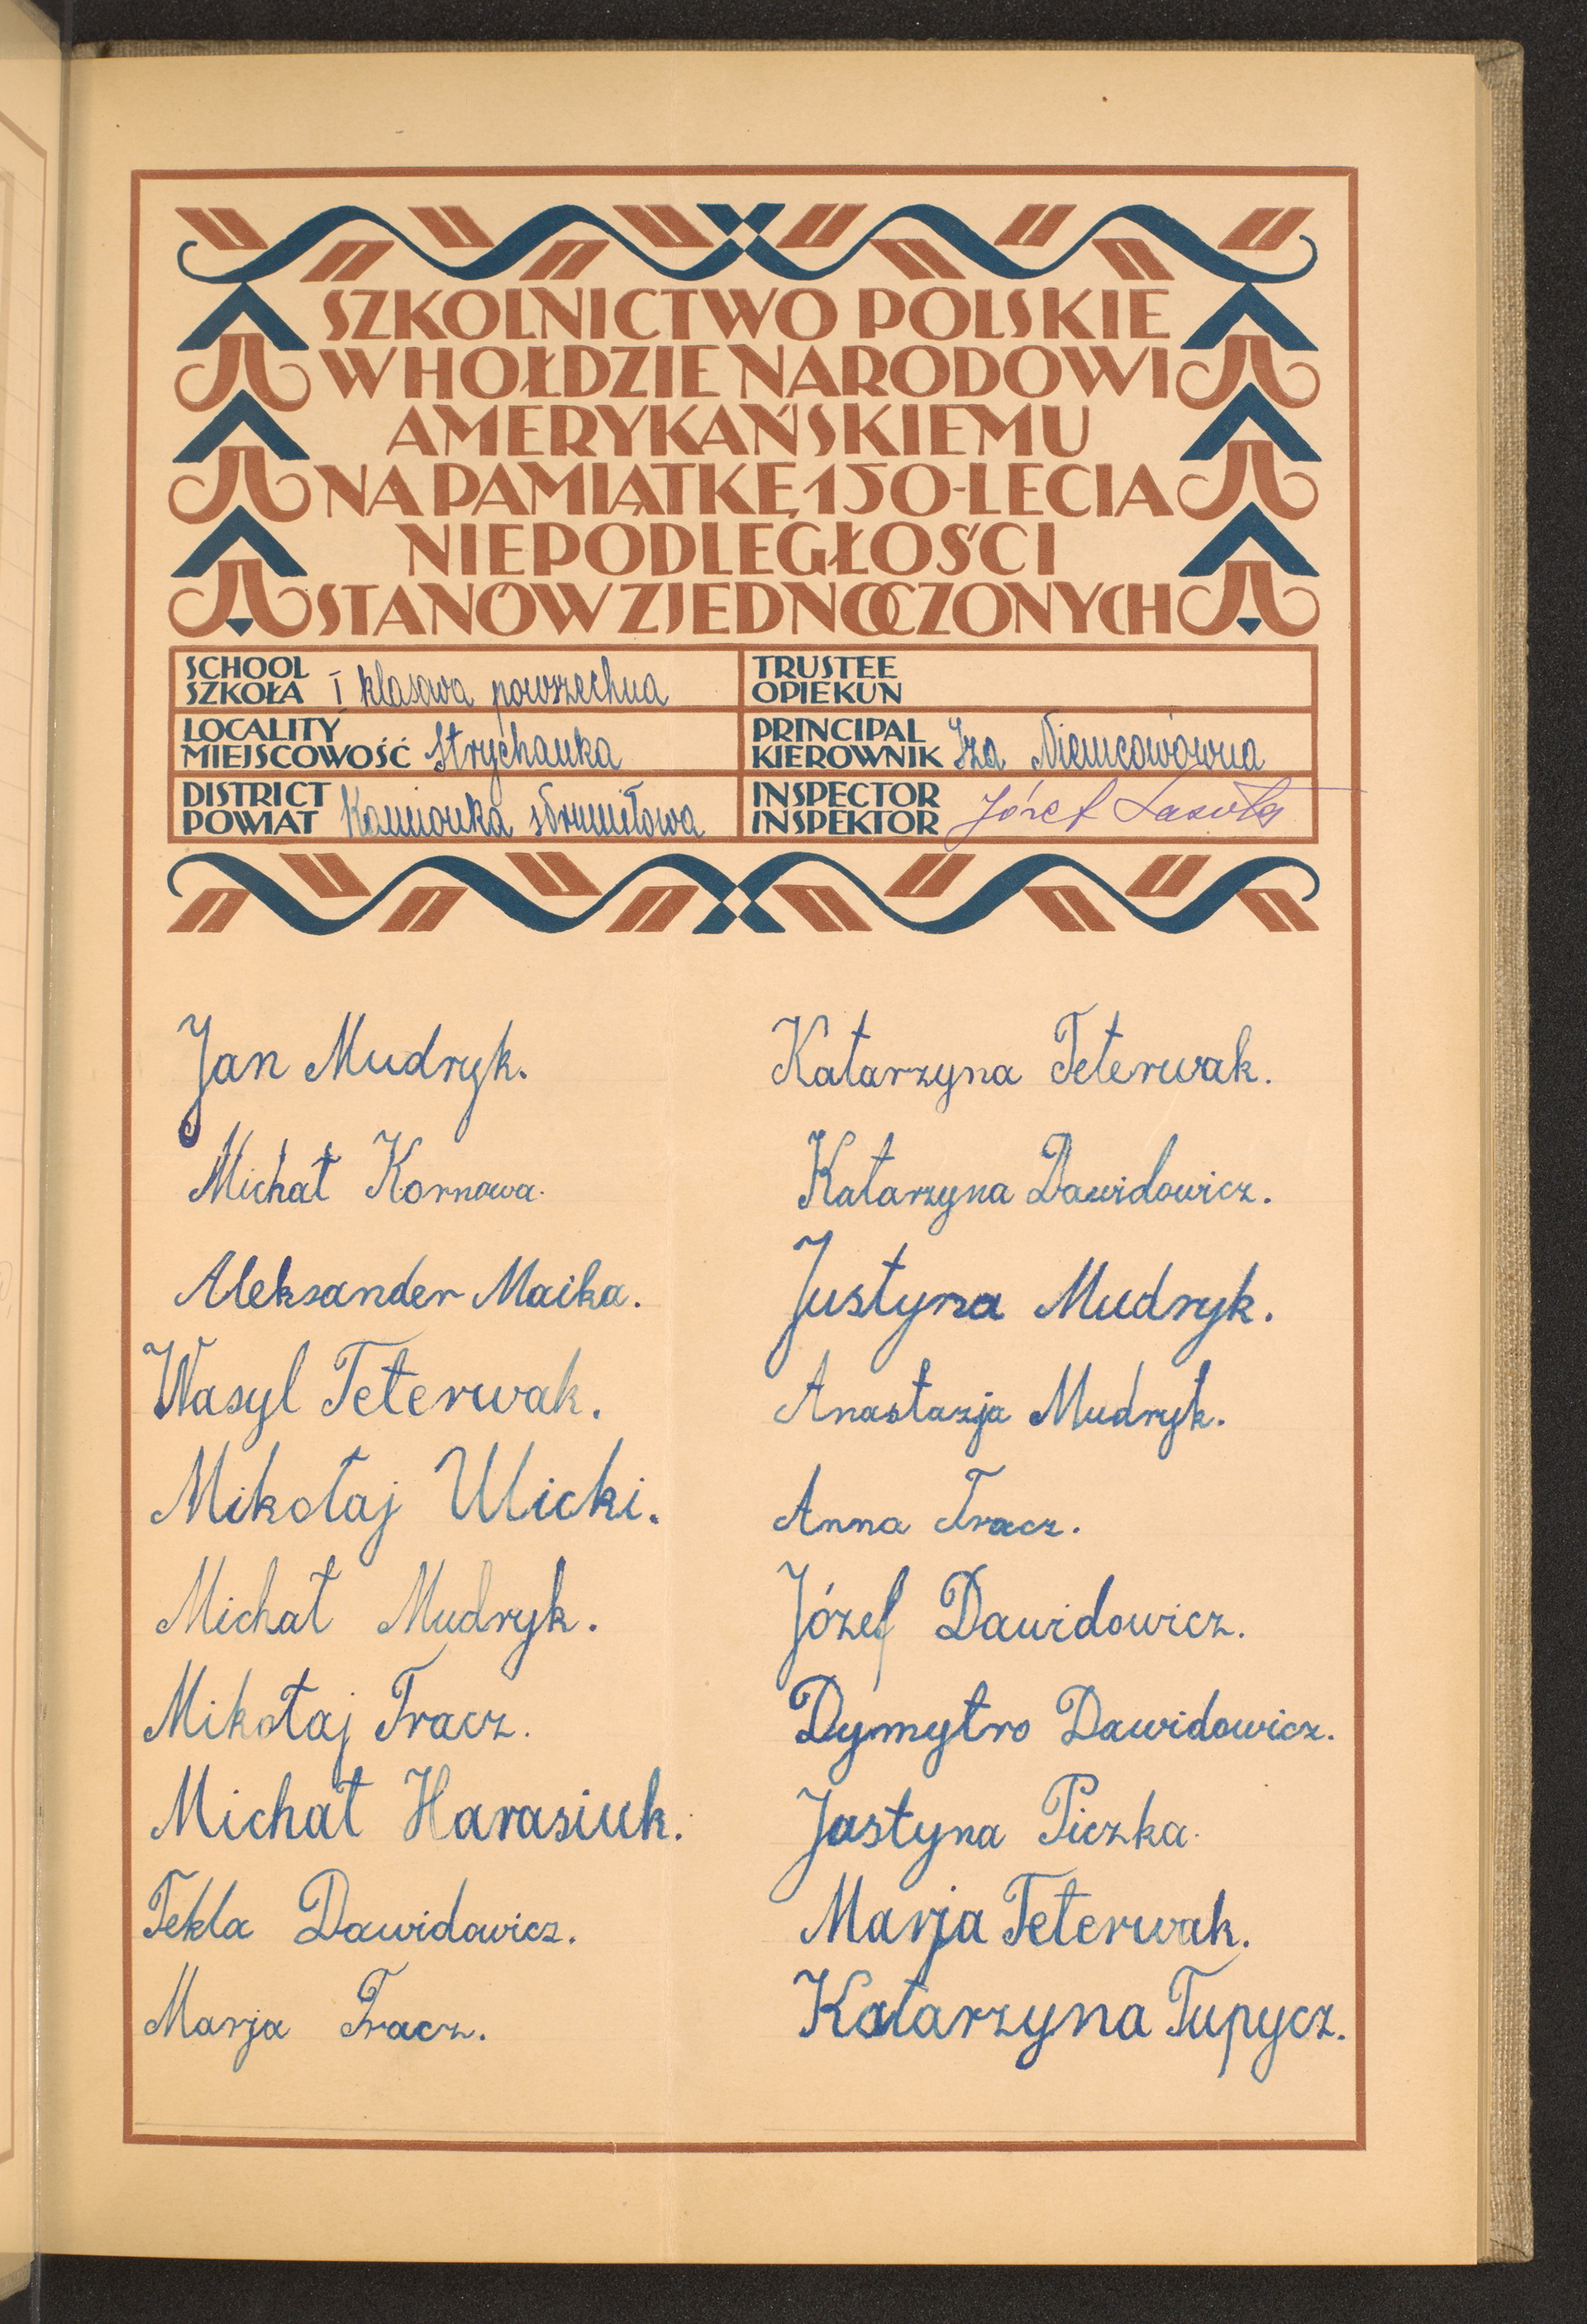 SZKOLNICTWO POLSKIE
W HOŁDZIE NARODOWI
AMERYKAŃSKIEMU
NA PAMIĄTKĘ 150-LECIA
NIEPODLEGŁOŚCI
STANÓW ZJEDNOCZONYCH
SCHOOL
SZKOŁA I klasowa powszechna
TRUSTEE
OPIEKUN
LOCALITY
MIEJSCOWOŚĆ Strychanka
PRINCIPAL
KIEROWNIK Iza Niemcówówna
DISTRICT
POWIAT Kamionka strumiłowa
INSPECTOR
INSPEKTOR Józef Lasota
Jan Mudryk.
Michał Kornowa.
Aleksander Maika.
Wasyl Teterwak.
Mikołaj Ulicki.
Michał Mudryk.
Mikołaj Tracz.
Michał Harasiuk.
Tekla Dawidowicz.
Marja Tracz.
Katarzyna Teterwak.
Katarzyna Dawidowicz.
Justyna Mudryk.
Anastazja Mudryk.
Anna Tracz.
Józef Dawidowicz.
Dymytro Dawidowicz.
Justyna Piczka.
Marja Teterwak.
Katarzyna Tupycz.